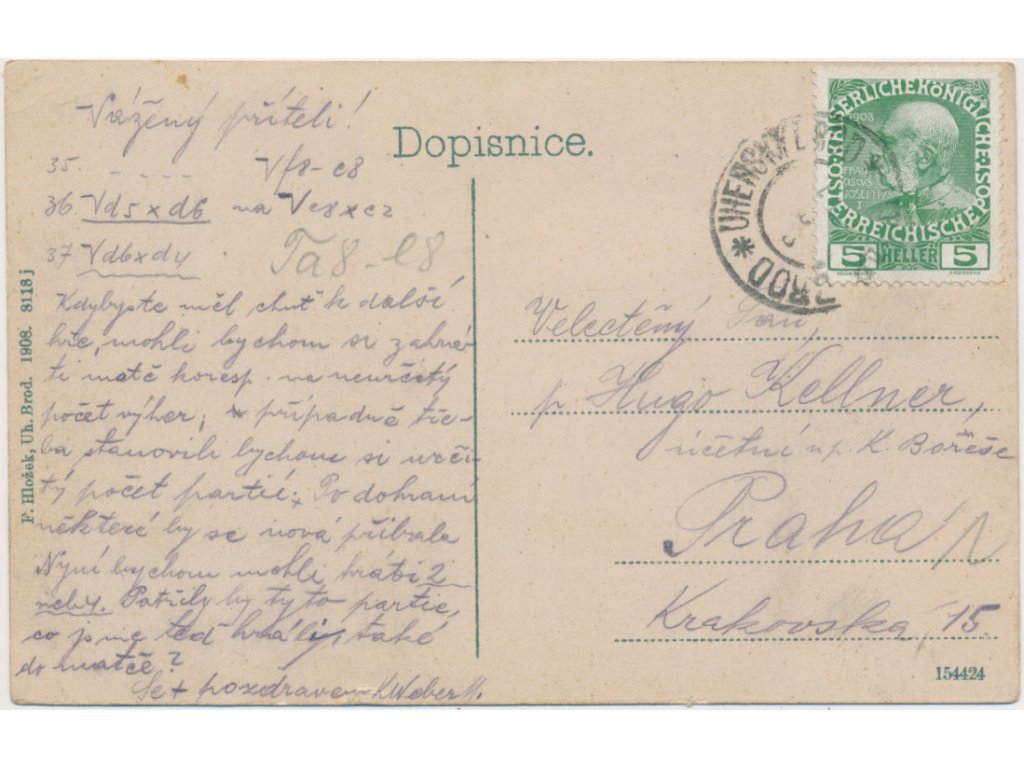 Vážený příteli!
Dopisnice.
35. - - - - Vf8-e8
36. Vd5xd6 na Ve8xe2
37 Vd6xd4
Ta8-e8
Kdybyste měl chuť k další
hře, mohli bychom si zahrá-
ti matč koresp. na neurčitý
počet výher; případně tře-
ba stanovili bychom si urči-
tý počet partií; Po dohraní
některé by se nová přibrala
Nyní bychom mohli hráti 2
neb 4. Patřily by tyto partie,
co jsme teď hráli, také
do matče?
Se + pozdravem KWeber
F. Hložek, Uh. Brod. 1908. 8118j
KAISERLICHE KÖNIGLICHE ÖSTERREICHISCHE POST
1908
FRAN
CISCVS
JOSEF I
5 HELLER 5
* UHERSKÝ BROD
BROD
Velectěný Pan,
p. Hugo Kellner,
účetní u p. K. Bořeše
Praha
Krakovská, 15.
154424